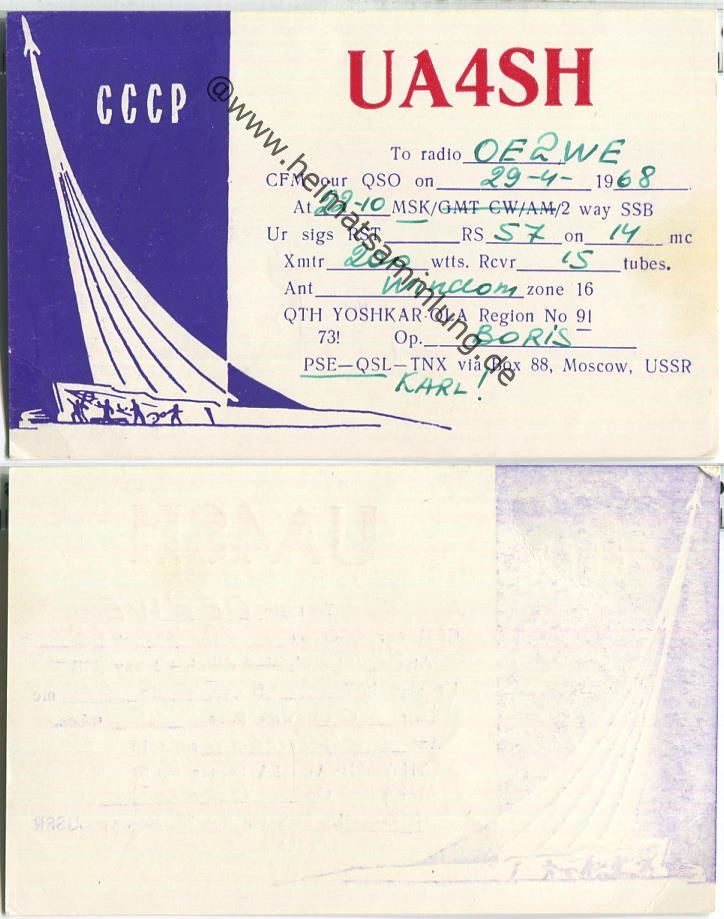 СССР
UA4SH
To radio OE2WE
CFM our QSO on 29-4- 1968
At -10 MSK/GMT CW/AM/2 way SSB
Ur sigs RST RS 57 on 14 mc
Xmtr 200 wtts. Rcvr 15 tubes.
Ant Windom zone 16
QTH YOSHKAR-OLA Region No 91
73! Op. BORIS
PSE—QSL—TNX via Box 88, Moscow, USSR
KARL!
@www.heimatsammlung.de